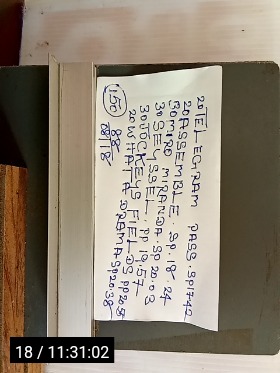 20 TELEGRAM PASS SP17·42
20 ASSEMBLE. SP. 18·24
30 MIRO MIRANDA. SP 20·03
30 SEYSSEL. PP 19·57
30 JOCKEYS FIELDS PP20·51
20 WHATADRAMA SP20·38
150
18 / 11:31:02